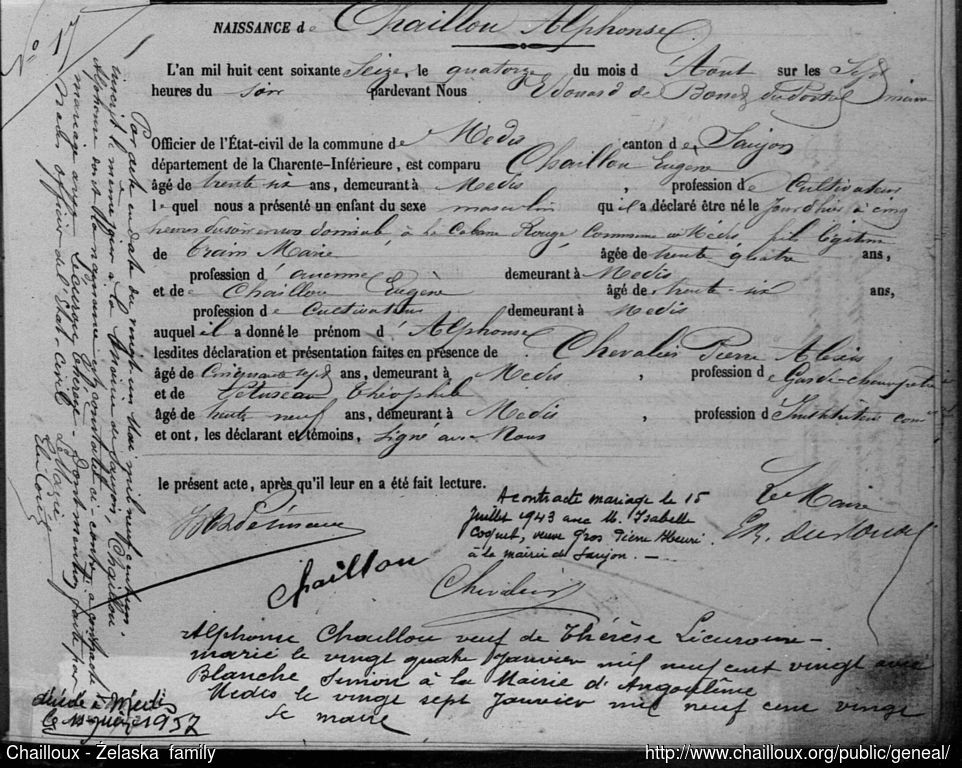 NAISSANCE de Chaillou Alphonse
L'an mil huit cent soixante Seize, le quatorze du mois d'Août sur les Sept
heures du soir pardevant Nous Edouard de Bonne maire
Officier de l'État-civil de la commune de Medis canton de Saujon
département de la Charente-Inférieure, est comparu Chaillou Eugène
âgé de trente six ans, demeurant à Medis, profession de Cultivateur
lequel nous a présenté un enfant du sexe masculin qu'il a déclaré être né le jourd'hui à cinq
heures du soir en son domicile à la Cabane Rouge Commune de Medis, fils légitime
de Marie âgée de trente quatre ans,
profession d'aucune demeurant à Medis
et de Chaillou Eugène âgé de trente-six ans,
profession de Cultivateur demeurant à Medis
auquel il a donné le prénom d'Alphonse
lesdites déclaration et présentation faites en présence de Chevalier Pierre Alexis
âgé de Cinquante sept ans, demeurant à Medis, profession de Garde-champêtre
et de Théophile
âgé de trente neuf ans, demeurant à Medis, profession d'Instituteur com
et ont, les déclarant et témoins, signé avec Nous
le présent acte, après qu'il leur en a été fait lecture.
Le Maire
A contracté mariage le 15
Juillet 1943 avec M. Isabelle
Coquet, veuve Gros Pierre Henri
à la mairie de Saujon. —
Chaillou
Chevalier
Alphonse Chaillou veuf de Thérèse
marié le vingt quatre Janvier mil neuf cent vingt avec
Blanche Simon à la Mairie d'Angoulême
Medis le vingt sept Janvier mil neuf cent vingt
Le maire
N° 71
Par acte en date du vingt un Mai mil neuf cent
inscrit le même jour à la Mairie de Saujon, Chaillou
Alphonse dont la naissance est constatée ci-contre, a contracté
mariage avec Thérèse - Dont mention faite par
Nous officier de l'Etat-civil
Le Maire
décédé à Médis
le 1957
Chailloux - Żelaska family
http://www.chailloux.org/public/geneal/